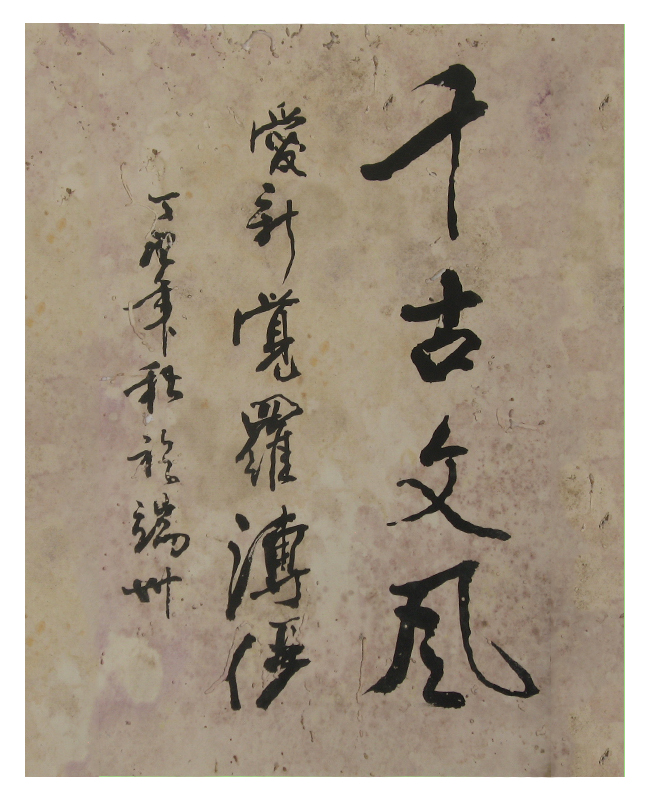 千古文風
愛新覺羅溥
丁年秋於端州